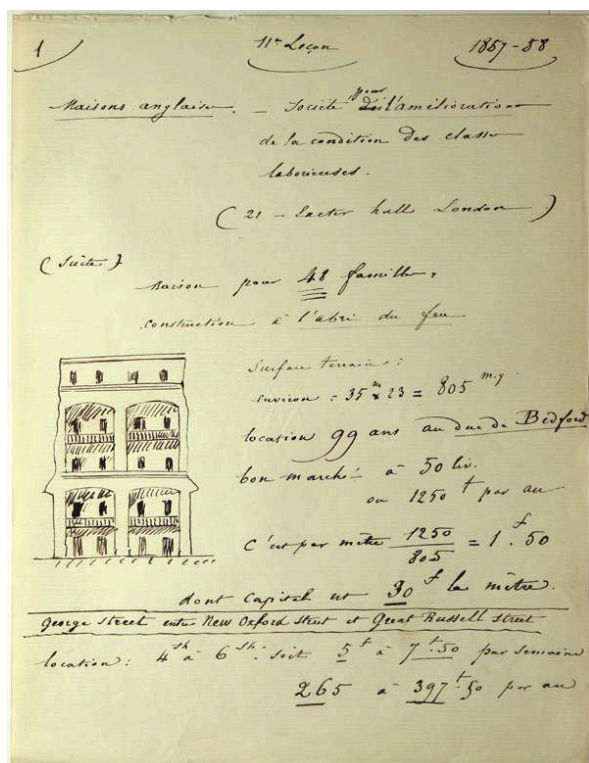 1 11e Leçon 1857-58
Maisons anglaises. — Société pour l'amélioration
de la condition des classes
laborieuses.
(21 — Exeter hall London)
(Suite)
Maison pour 48 familles.
construction à l'abri du feu
Surface terrain :
environ = 35m x 23 = 805 m.q
location 99 ans au duc de Bedford
bon marché à 50 liv.
ou 1250 f par an
C'est par mètre 1250/805 = 1f.50
dont capital est 30f le mètre.
George Street entre New Oxford Street et Great Russell Street
location : 4sh à 6sh. soit 5f à 7f.50 par semaine
265 à 397f.50 par an